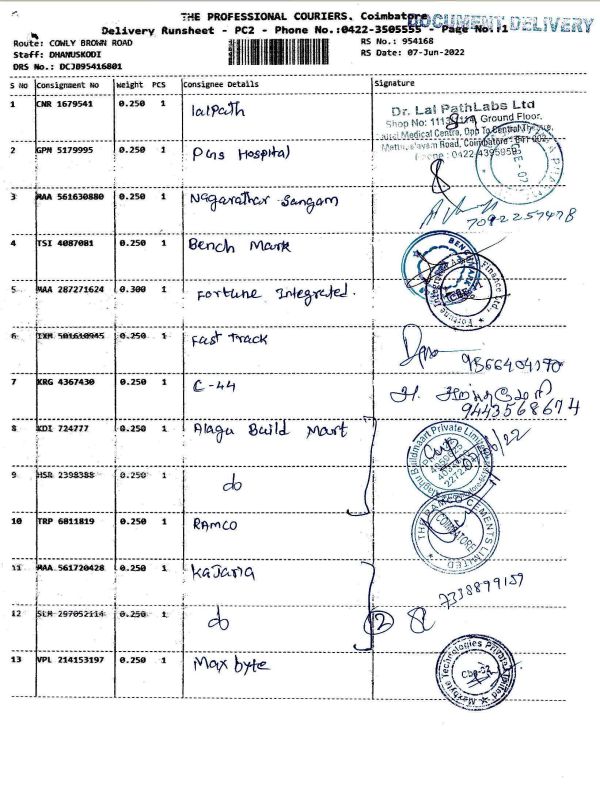 THE PROFESSIONAL COURIERS. Coimbatore
DOCUMENT DELIVERY
Delivery Runsheet - PC2 - Phone No.:0422-3505555 - Page No.:1
Route: COWLY BROWN ROAD
RS No.: 954168
Staff: DHANUSKODI
RS Date: 07-Jun-2022
DRS No.: DCJ095416801
S No Consignment No Weight PCS Consignee Details Signature
1 CNR 1679541 0.250 1 lalpath
Dr. Lal PathLabs Ltd
Shop No: Ground Floor,
Medical Centre, Opp To Central Theatre,
Road, Coimbatore - 641 002.
Phone: 0422 4395959
2 GPM 5179995 0.250 1 Pms Hospital
3 MAA 561630880 0.250 1 Nagarathar Sangam
7092257478
4 TSI 4087081 0.250 1 Bench Mark
5 MAA 287271624 0.300 1 Fortune Integrated.
Fortune Integrated Finance Ltd.,
6 IXM 501610945 0.250 1 Fast Track
9566404170
7 KRG 4367430 0.250 1 C-44
9443568674
8 KDI 724777 0.250 1 Alagu Build Mart
Buildmaart Private Limited
9 HSR 2398388 0.250 1 do
10 TRP 6011819 0.250 1 RAMCO
THE RAMCO CEMENTS LIMITED
COIMBATORE
11 MAA 561720428 0.250 1 Kajaria
7338899159
12 SLM 297052114 0.250 1 do
2
13 VPL 214153197 0.250 1 Max byte
Maxbyte Technologies Private Limited
Cbe-02